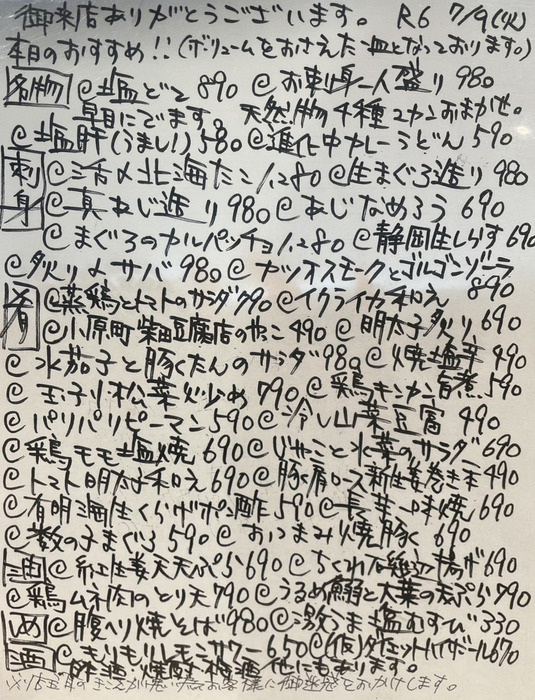 御来店ありがとうございます。 R6 7/9(火)
本日のおすすめ!!(ボリュームをおさえた一皿となっております。)
名物 @塩どて 890 @お刺身一人盛り 980
早目にでます。 天然物4種2カンおまかせ。
@塩肝(うまし!) 580 @進化中カレーうどん 590
刺身 @活〆北海たこ 1.280 @生まぐろ造り 980
@真あじ造り 980 @あじなめろう 690
@まぐろのカルパッチョ 1.280 @静岡生しらす 690
@炙り〆サバ 980 @カツオスモークとゴルゴンゾーラ 890
肴 @蒸鶏とトマトのサラダ 790 @イクライカ和え
@小原町柴田豆腐店のやっこ 490 @明太子炙り 690
@水茄子と豚くたんのサラダ 980 @焼塩芋 490
@玉子小松菜炒め 790 @鶏キンカン旨煮 590
@パリパリピーマン 590 @冷し山菜豆富 490
@鶏モモ塩焼 690 @じゃこと水菜のサラダ 690
@トマト明太子和え 690 @豚肩ロース新生姜巻き1本 490
@有明海産くらげポン酢 590 @長芋一味焼 690
@数の子まぐろ 590 @おつまみ焼豚 690
油 @紅生姜天天ぷら 690 @ちくわ石垣揚げ 690
@鶏ムネ肉のとり天 790 @うるめ鰯と大葉の天ぷら 790
〆 @腹ヘリ焼そば 980 @激うま塩むすび 330
酒 @もりもりレモンサワー 650 @(仮)ダイエットハイボール 670
日本酒、焼酎、梅酒 他にもあります。
お客様に御迷惑をおかけします。